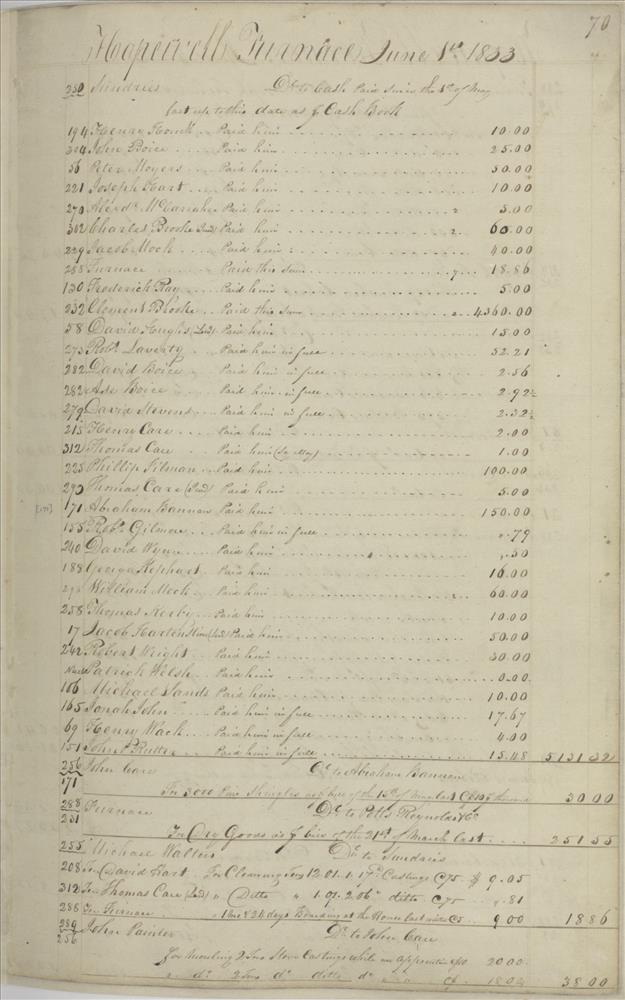 70
Hopewell Furnace June 1st 1833
250 Sundries Dr to Cash Paid since the 1st of May
last up to this date as pr Cash Book
194 Henry Houck Paid him 10.00
304 John Boice Paid him 25.00
56 Peter Moyers Paid him 50.00
221 Joseph Hart Paid him 10.00
270 Paid him 5.00
302 Charles Brooke Paid him 60.00
229 Jacob Mock Paid him 40.00
288 Furnace Paid this sum 18.86
130 Frederick Ray Paid him 5.00
232 Clement Brooke Paid this sum 4360.00
58 David Hughs Paid him 15.00
273 Robt Laverty Paid him in full 32.21
282 David Boice Paid him in full 2.56
282 Boice Paid him in full 2.92½
279 David Stevens Paid him in full 2.32½
215 Henry Care Paid him 2.00
312 Thomas Care Paid him 1.00
225 Phillip Filman Paid him 100.00
290 Thomas Care Paid him 5.00
[171] 171 Abraham Bannan Paid him 150.00
155 Robt Gilmore Paid him in full .79
240 David Wynn Paid him .50
188 George Kephart Paid him 16.00
William Mock Paid him 60.00
258 Thomas Kerby Paid him 10.00
17 Jacob Paid him 50.00
242 Robert Wright Paid him 30.00
Patrick Welsh Paid him 0.00
106 Michael Sands Paid him 10.00
165 Jonah John Paid him in full 17.67
69 Henry Wack Paid him in full 4.00
151 John P Rutter Paid him in full 15.48 5131 32
256 John Care Dr to Abraham Bannan
171 In 3000 Pine Shingles as pr bill of the 30 00
288 Furnace Dr to Potts Reynolds & Co
231
In Dry Goods as pr bill of the 21st of March last 251 55
255 Michael Walters Dr to Sundries
208 To David Hart In Cleaning Castings $ 9.05
312 To Thomas Care Ditto ditto .81
288 To Furnace 1 & 24 days Boarding at the House 9 00 18 86
289 John Painter Dr to John Care
256
for moulding 2 Tons Stove Castings while an apprentice 20 00
do 2 Tons do ditto do 18.00 38 00